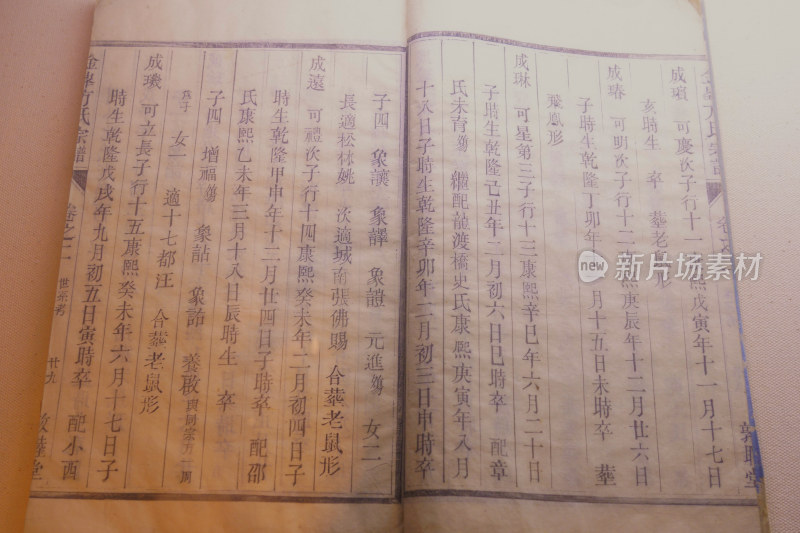 成碩 可慶次子行十一
熙戊寅年十一月十七日
亥時生 卒 葬老
形
成瑃 可明次子行十二
熙庚辰年十二月廿六日
子時生乾隆丁卯年
月十五日未時卒 葬
葉鳳形
成琳 可星第三子行十三康熙辛巳年六月二十日
子時生乾隆己丑年二月初六日巳時卒 配章
氏未育 繼配龍渡橋史氏康熙庚寅年八月
十八日子時生乾隆辛卯年二月初三日申時卒
子四 象演 象譯 象證 元進 女二
長適松林姚 次適城南張佛賜 合葬老鼠形
成遠 可禮次子行十四康熙癸未年二月初四日子
時生乾隆甲申年十二月廿四日子時卒 配邵
氏康熙乙未年三月十八日辰時生 卒
子四 增福 象詁 象諦 養啟
女一 適十七都汪 合葬老鼠形
成璣 可立長子行十五康熙癸未年六月十七日子
時生乾隆戊戌年九月初五日寅時卒 配小西
方氏宗譜
卷之二
敦睦堂
new
新片场素材